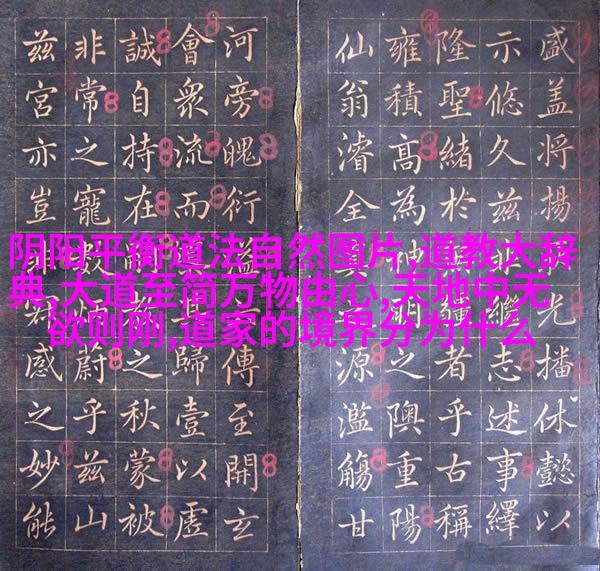 盛盖将揚光播休懿以
示悠久兹繼志述事繹
隆聖緒於疆者乎古稱
雍積高為神明之隩重陽
仙翁濬全真源濫觴甘
河旁魄衍益傳至開玄
會衆流而歸壹以虛
誠自持在之秋蒙被
非常之寵蔚乎兹山
兹宮亦豈感之妙能
阴阳平衡道法自然图片,道教大辞
典,大道至简万物由心,天地中无
欲则刚,道家的境界分为什么